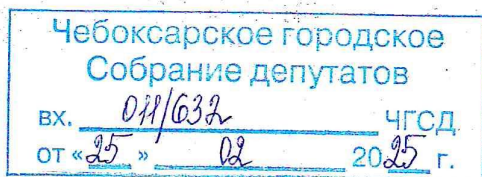 Чебоксарское городское
Собрание депутатов
вх. 011/632 ЧГСД
от «25» 02 2025 г.